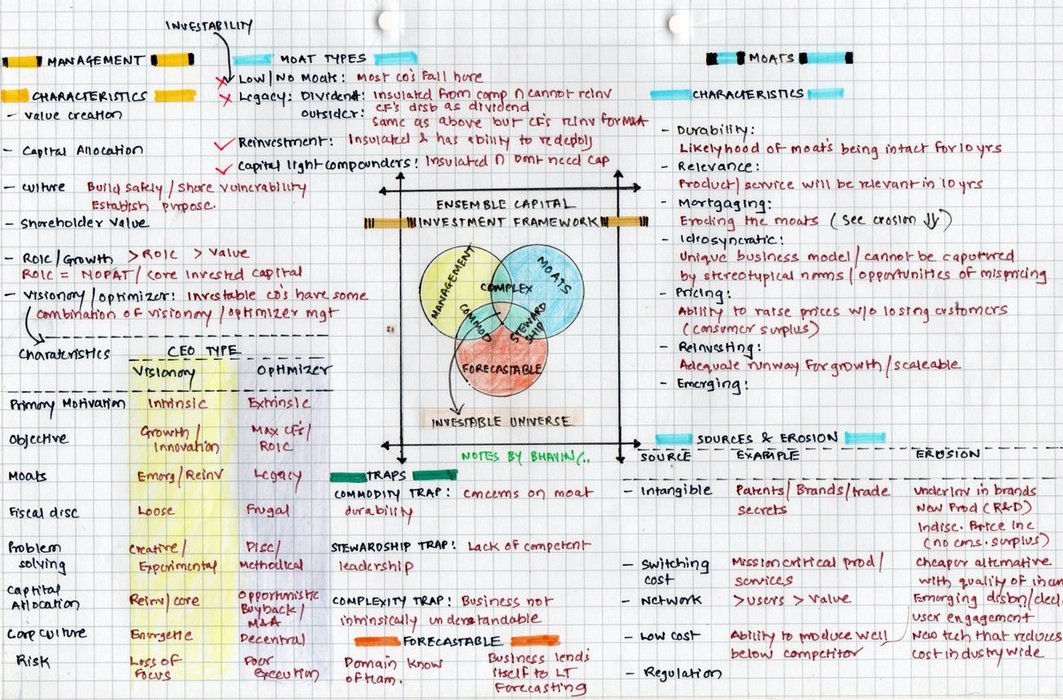 INVESTABILITY
MANAGEMENT
CHARACTERISTICS
- Value creation
- Capital Allocation
- Culture Build safely / Share vulnerability
Establish purpose.
- Shareholder Value
- ROIC/Growth > ROIC > Value
ROIC = NOPAT/ core invested capital
- Visionary / optimizer: Investable co's have some
combination of visionary / optimizer mgt
MOAT TYPES
Low/No Moats: Most co's fall here
Legacy: Dividend: Insulated from comp n cannot reinv
CF's disb as dividend
outsider: Same as above but CF's reinv for M&A
Reinvestment: Insulated & has ability to redeploy
Capital light compounders: Insulated n Dont need cap
ENSEMBLE CAPITAL
INVESTMENT FRAMEWORK
MANAGEMENT
MOATS
COMPLEX
COMMOD
STEWARD
SHIP
FORECASTABLE
INVESTABLE UNIVERSE
NOTES BY BHAVIN/..
Charateristics
CEO TYPE
Visionary Optimizer
Primary Motivation Intrinsic Extrinsic
Objective Growth/ Max CF's/
Innovation ROIC
Moats Emerg/Reinv Legacy
Fiscal disc Loose Frugal
Problem Creative/ Disc/
solving Experimental Methodical
Captital Reinv/core opportunistic
Allocation Buyback/
M&A
Corp culture Energetic Decentral
Risk Loss of Poor
Focus Execution
TRAPS
COMMODITY TRAP: concerns on moat
durability
STEWARDSHIP TRAP: Lack of competent
leadership
COMPLEXITY TRAP: Business not
intrinsically understandable
FORECASTABLE
Domain know Business lends
of team. itself to LT
Forecasting
MOATS
CHARACTERISTICS
- Durability:
Likelyhood of moats being intact for 10 yrs
- Relevance:
Product/ service will be relevant in 10 yrs
- Mortgaging:
Eroding the moats (see erosion ↓↓)
- Idiosyncratic:
Unique business model / cannot be captured
by stereotypical norms / opportunities of mispricing
- Pricing:
Ability to raise prices w/o losing customers
(consumer surplus)
- Reinvesting:
Adequate runway for growth / scaleable
- Emerging:
SOURCES & EROSION
SOURCE EXAMPLE EROSION
- Intangible Patents/ Brands/trade underinv in brands
secrets New Prod (R&D)
Indisc. Price Inc
(no cms. surplus)
- Switching Mission critical prod/ cheaper alternative
cost services with quality of
- Network >users > value Emerging
user engagement
- Low cost Ability to produce well New tech that reduces
below competitor cost industry wide
- Regulation